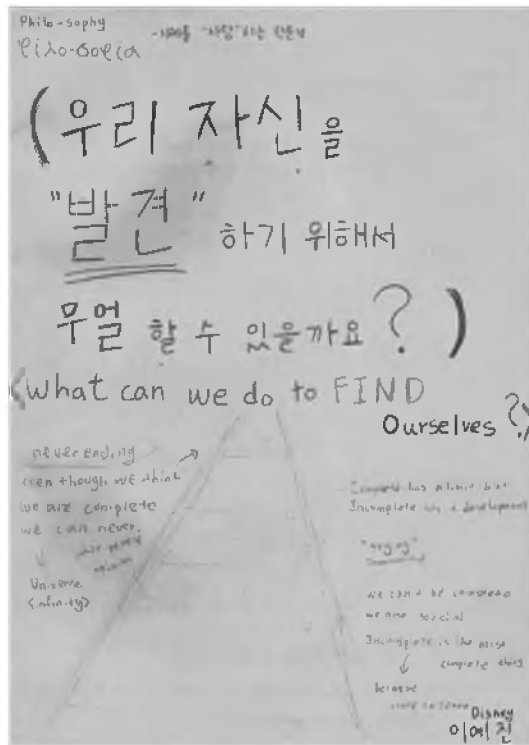 Philo-sophy
(우리 자신을
"발견" 하기 위해서
무얼 할 수 있을까요?)
(What can we do to FIND
Ourselves?)
never ending
even though we think
we are complete
we can never.
Universe
<infinity>
Complete has a limit but
Incomplete has a development
"trying"
we can't be completed
we are social
Incomplete is the most
complete thing
because
Disney
이예진